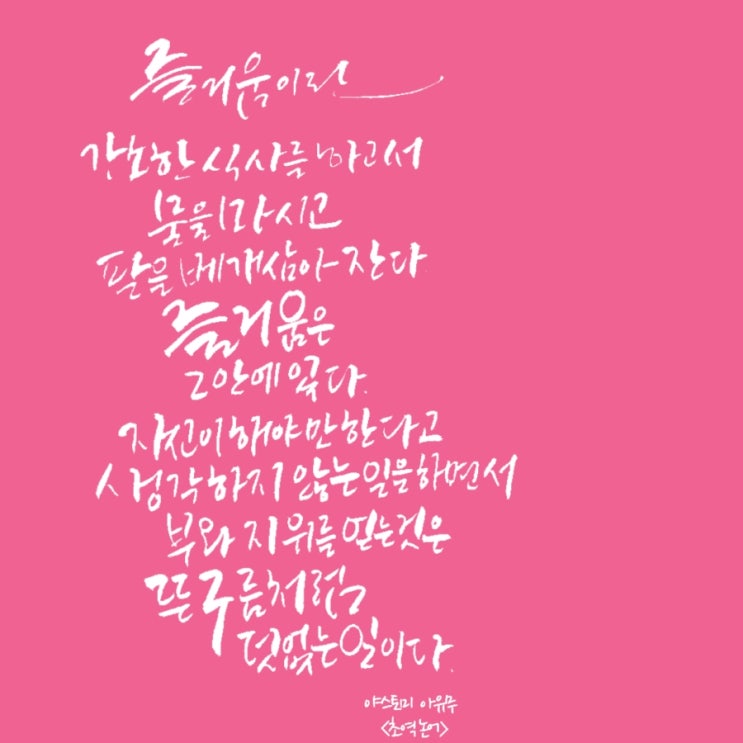 즐거움이란
간소한 식사를 하고서
물을 마시고
팔을 베개삼아 잔다
즐거움은
그안에 있다.
자신이 해야만 한다고
생각하지 않는 일을 하면서
부와 지위를 얻는것은
뜬구름처럼
덧없는 일이다.
야스토미 아유무
<초역 논어>